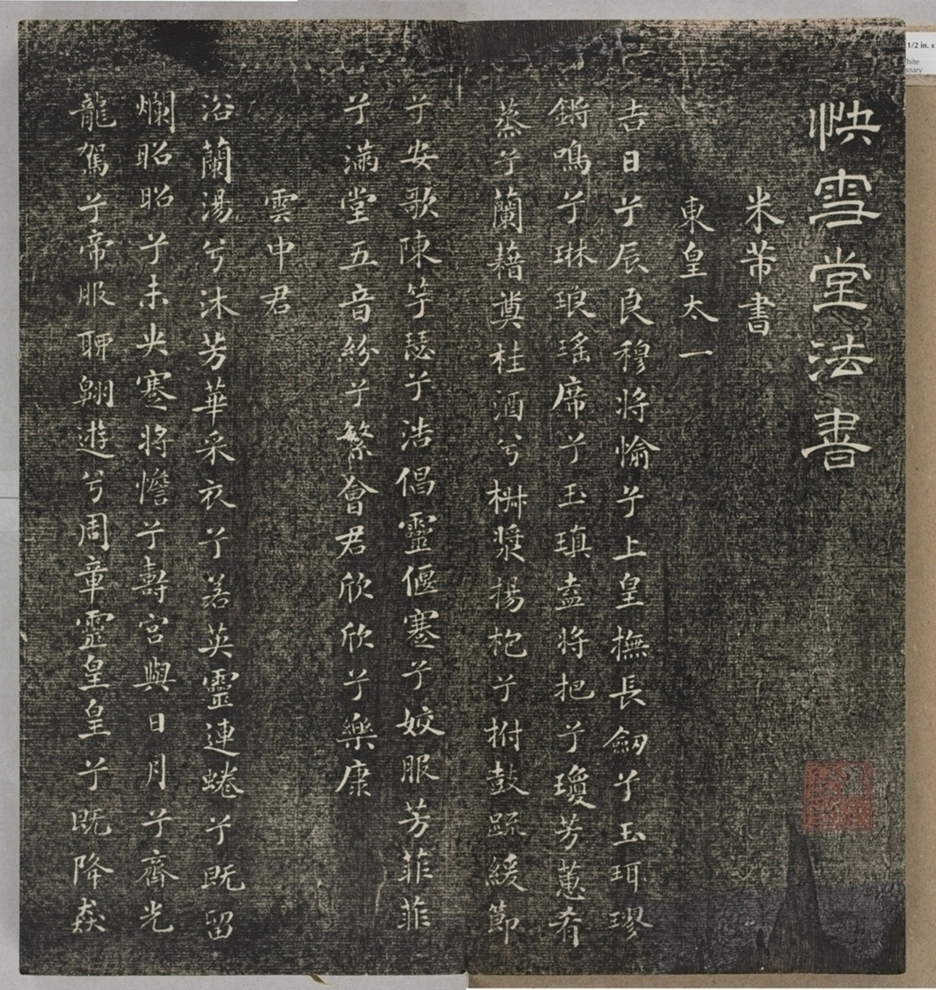 快雪堂法書
米芾書
東皇太一
吉日兮辰良穆將愉兮上皇撫長劒兮玉珥璆
鏘鳴兮琳琅瑤席兮玉瑱盍將把兮瓊芳蕙肴
蒸兮蘭藉奠桂酒兮椒漿揚枹兮拊鼓疏緩節
兮安歌陳竽瑟兮浩倡靈偃蹇兮姣服芳菲菲
兮滿堂五音紛兮繁會君欣欣兮樂康
雲中君
浴蘭湯兮沐芳華采衣兮若英靈連蜷兮既留
爛昭昭兮未央蹇將憺兮壽宮與日月兮齊光
龍駕兮帝服聊翱遊兮周章靈皇皇兮既降猋
1/2 in. x